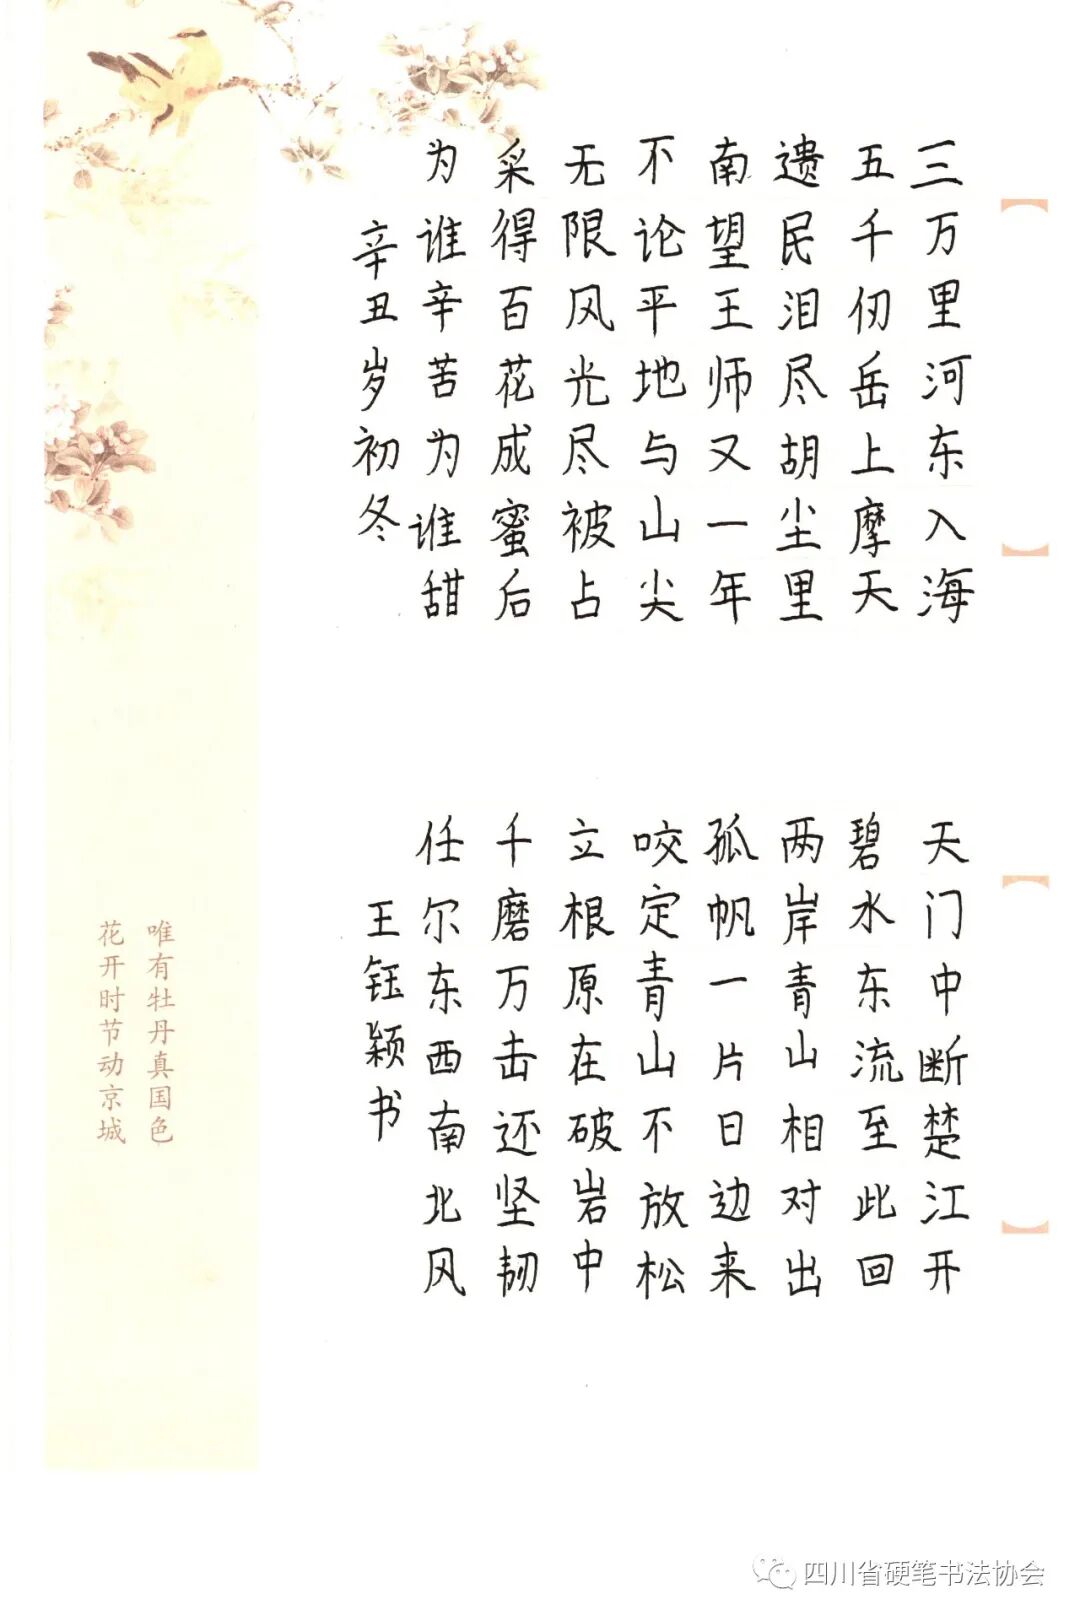 三万里河东入海
五千仞岳上摩天
遗民泪尽胡尘里
南望王师又一年
不论平地与山尖
无限风光尽被占
采得百花成蜜后
为谁辛苦为谁甜
辛丑岁初冬
天门中断楚江开
碧水东流至此回
两岸青山相对出
孤帆一片日边来
咬定青山不放松
立根原在破岩中
千磨万击还坚韧
任尔东西南北风
王钰颖书
唯有牡丹真国色
花开时节动京城
四川省硬笔书法协会